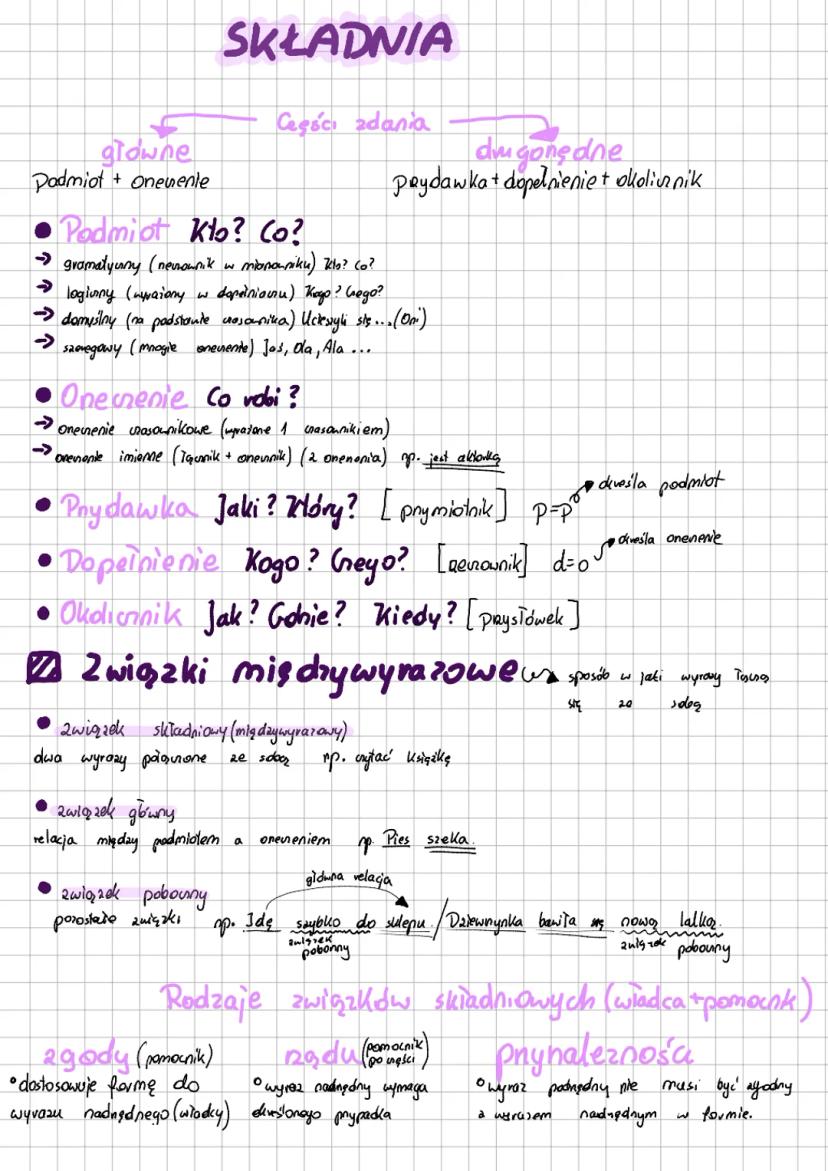 SKŁADNIA
Części zdania
główne
drugorzędne
podmiot + orzeczenie
przydawka + dopełnienie + okolicznik
Podmiot Kto? Co?
→ gramatyczny (rzeczownik w mianowniku) Kto? Co?
→ logiczny (wyrażony w dopełniaczu) Kogo? Czego?
→ domyślny (na podstawie czasownika) Ucieszyli się ... (Oni)
→ szeregowy (mnogie orzeczenie) Jaś, Ola, Ala ...
Orzeczenie Co robi?
→ orzeczenie czasownikowe (wyrażone 1 czasownikiem)
→ orzeczenie imienne (łącznik + orzecznik) (2 orzeczenia) np. jest aktorką
Przydawka Jaki? Który? [przymiotnik] p=p określa podmiot
Dopełnienie Kogo? Czego? [rzeczownik] d=o określa orzeczenie
Okolicznik Jak? Gdzie? Kiedy? [przysłówek]
Związki międzywyrazowe sposób w jaki wyrazy łączą
się ze sobą
związek składniowy (międzywyrazowy)
dwa wyrazy połączone ze sobą np. czytać książkę
związek główny
relacja między podmiotem a orzeczeniem np. Pies szczeka.
główna relacja
związek poboczny
pozostałe związki np. Idę szybko do sklepu. / Dziewczynka bawiła się nową lalką.
związek poboczny
związek poboczny
Rodzaje związków składniowych (władca + pomocnik)
zgody (pomocnik)
°dostosowuje formę do
wyrazu nadrzędnego (władcy)
rządu (pomocnik po części)
°wyraz nadrzędny wymaga
określonego przypadka
przynależności
°wyraz podrzędny nie musi być zgodny
z wyrazem nadrzędnym w formie.